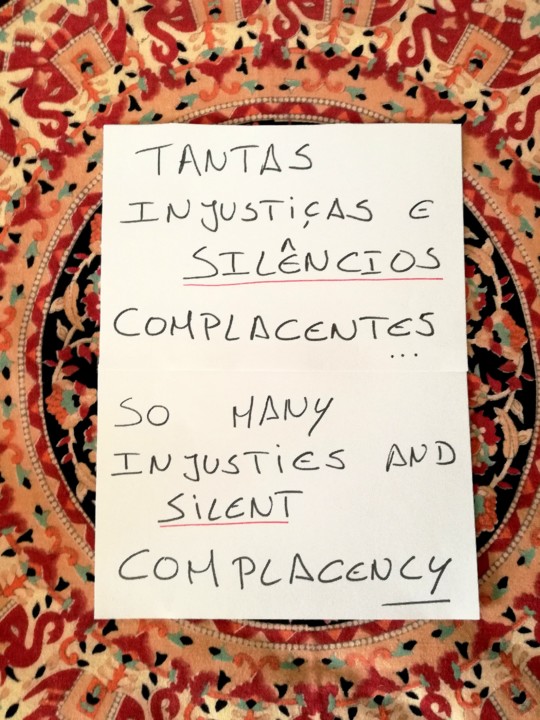 TANTAS
INJUSTIÇAS E
SILÊNCIOS
COMPLACENTES
...
SO MANY
INJUSTIES AND
SILENT
COMPLACENCY